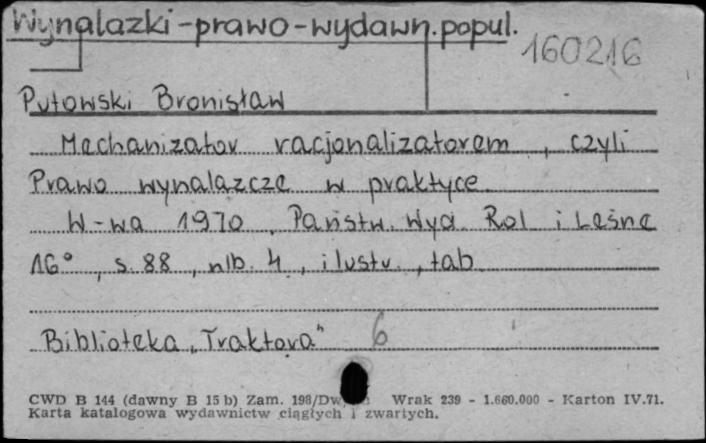 Wynalazki-prawo-wydawn.popul.
160216
Putowski Bronisław
Mechanizator racjonalizatorem, czyli
Prawo wynalazcze w praktyce.
W-wa 1970, Państw. Wyd. Rol i Leśne
16°, s. 88, nlb. 4, ilustr., tab.
Biblioteka „Traktora” 6
CWD B 144 (dawny B 15 b) Zam. 198/Dw Wrak 239 - 1.660.000 - Karton IV.71.
Karta katalogowa wydawnictw ciągłych i zwartych.